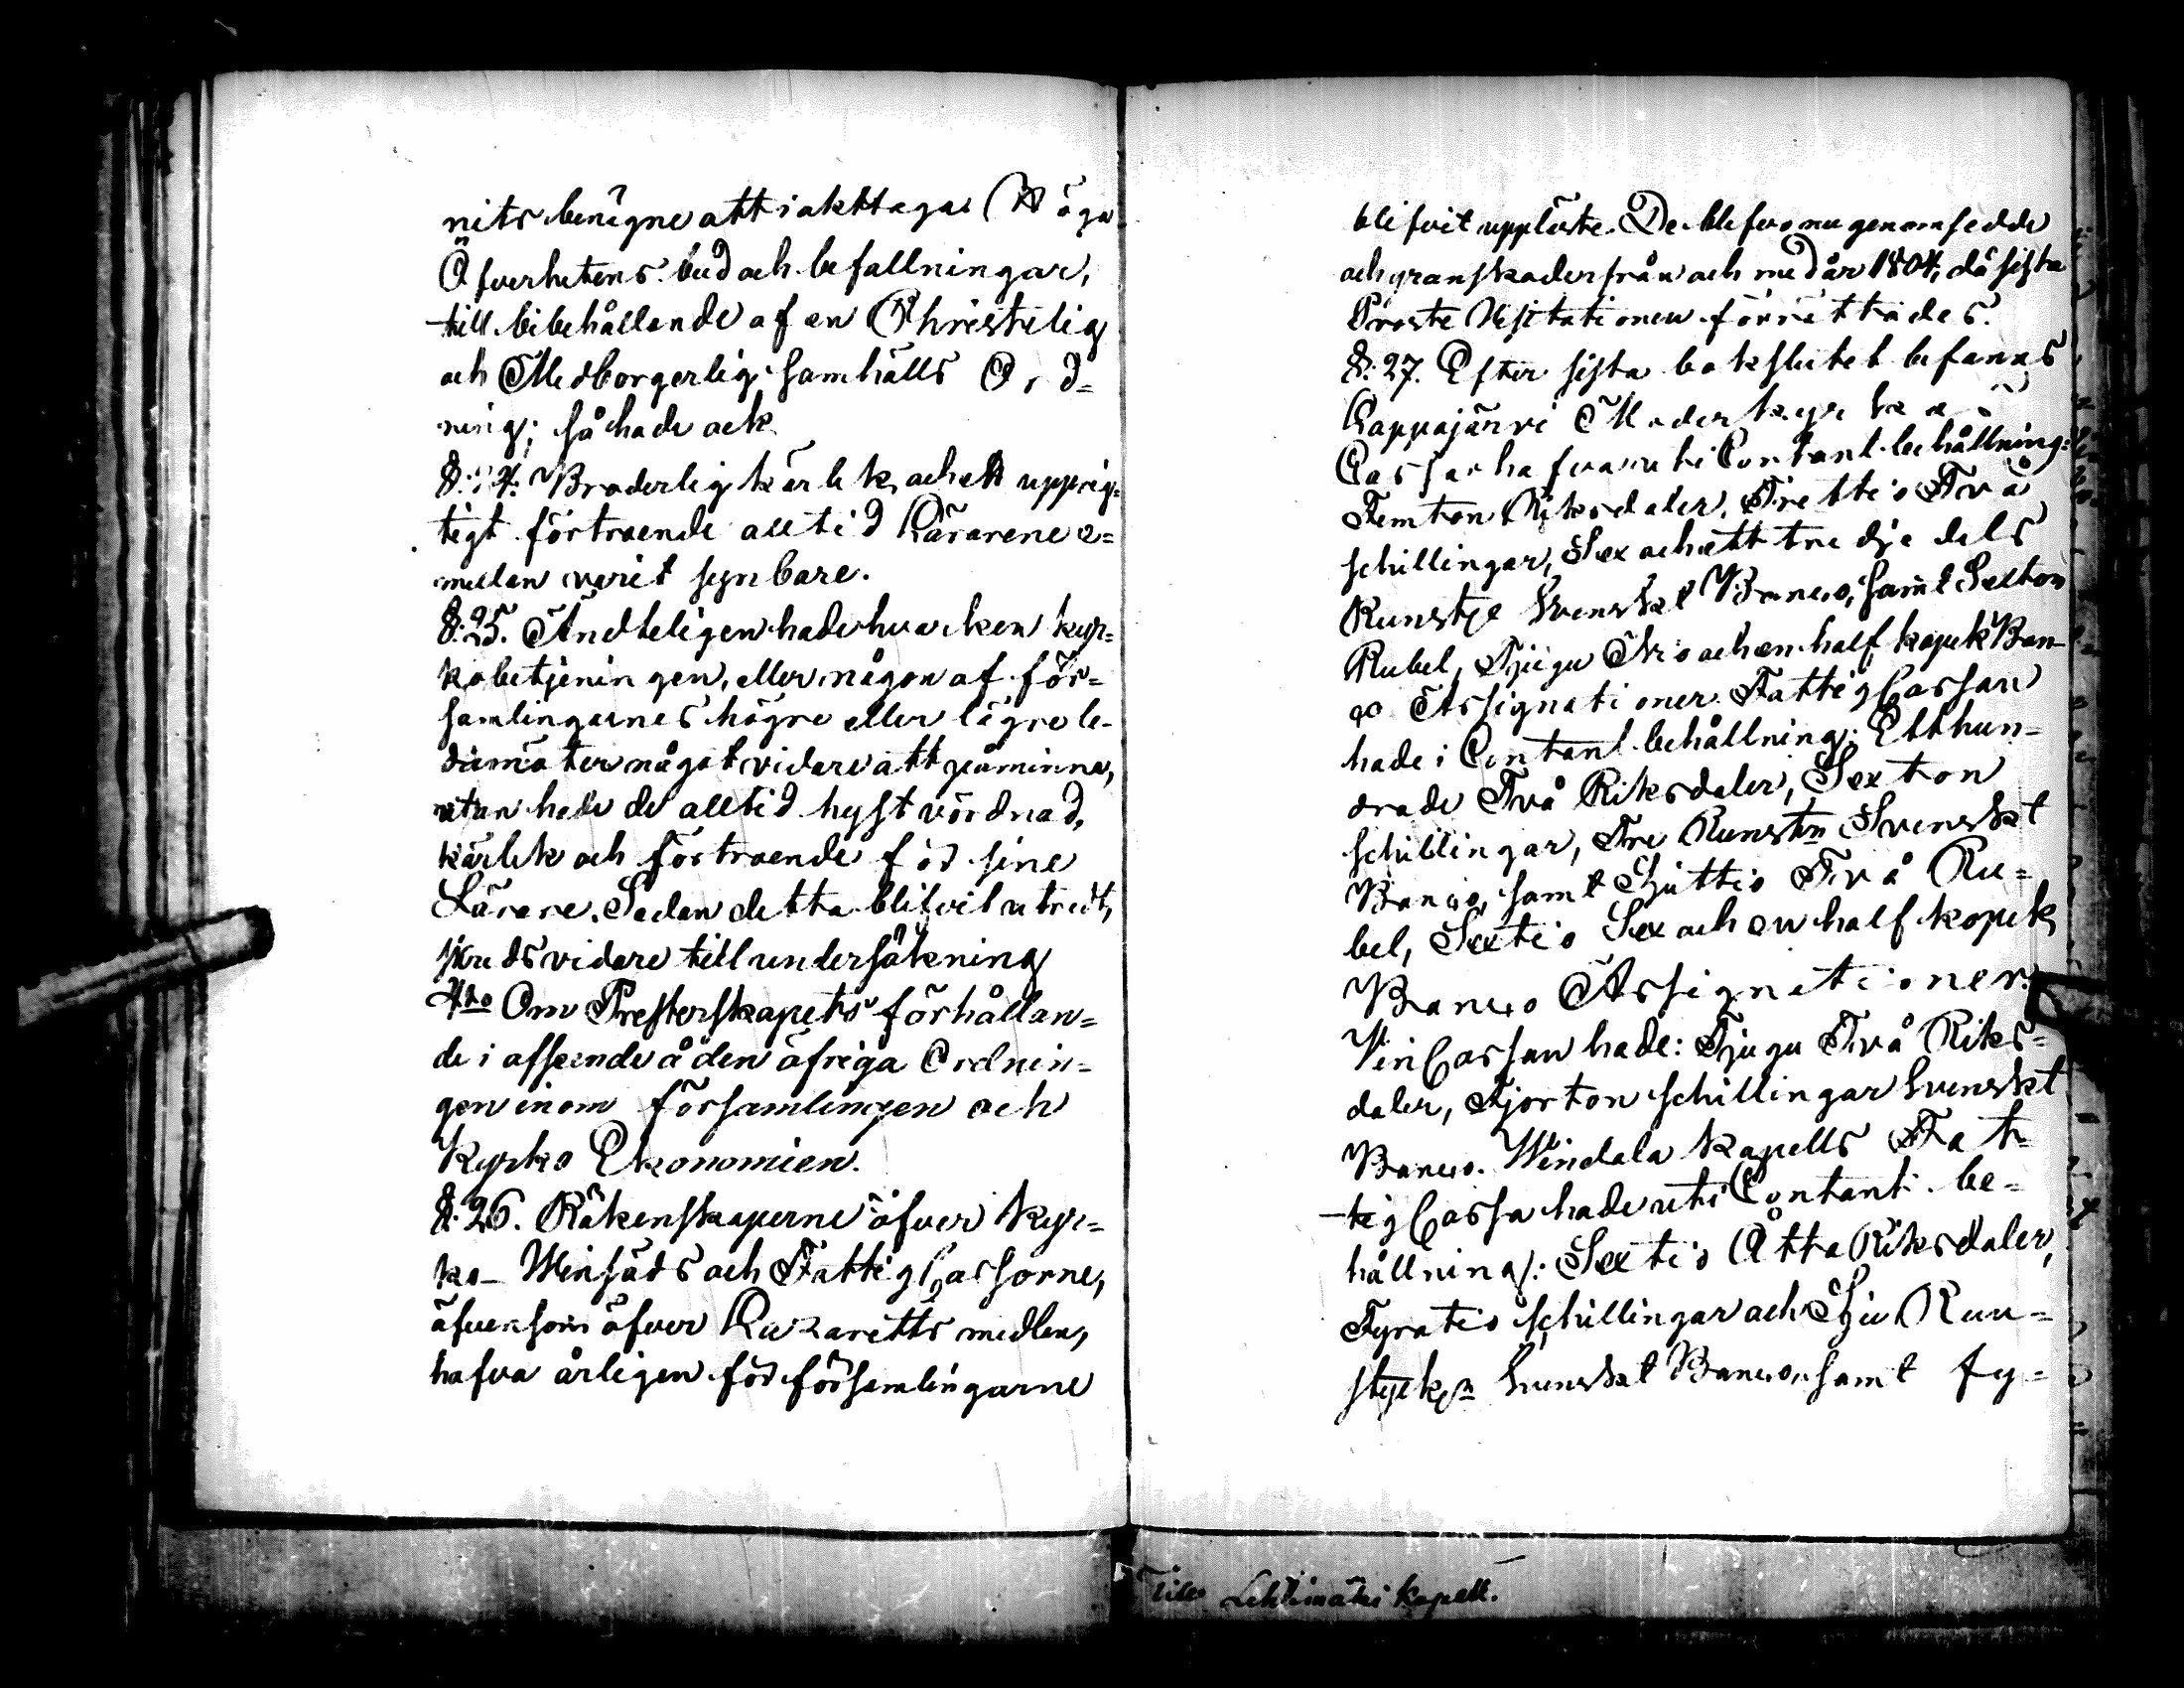 nits benägne att iakttaga Höga
Öfverhetens bud och befallningar,
till bibehållande af en Christelig
och Medborgerlig samhälls Ord=
ning; så hade ock
§. 24. Broderlig kärlek och ett upprig=
tigt förtroende alltid Lärarene e=
mellan varit synbare.
§. 25. Ändteligen hade hvarken kyr=
kobetjeningen, eller någon af för=
samlingarnes högre eller lägre le-
damöter något vidare att påminna,
utan hade de alltid hyst vördnad,
kärlek och förtroende för sine
Lärare. Sedan detta blifvit utredt,
skreds vidare till undersökning
4to Om Presterskapets förhållan=
de i afseende å den öfriga Ordnin=
gen inom församlingen och
Kyrko Ekonomien.
§. 26. Räkenskaperne öfver Kyr=
ko- Vinsäds och Fattig Cassorne,
äfvensom öfver Lazaretts medlen,
hafva årligen för församlingarne
blifvit uppläste. De blefvo nu genomsedde
och granskade från och med år 1804, då sista
Proste Visitationen förrättades.
§. 27. Efter sista bokslutet befanns
Lappajärvi Moderkyrka
Cassa hafva uti Contant behållning:
Femton Riksdaler, Trettio Två
schillingar, Sex och ett tredjedels
Runstye Svenskt Banco, samt Sexton
Rubel, Tjugu Tre och en half kopek Ban-
co Assignationer. Fattig Cassan
hade i Contant behållning: Etthun=
drade Två Riksdaler, Sexton
schillingar, Tre Runstn Svenskt
Banco, samt Sjuttio Två Ru=
bel, Sextio Sex och en half kopek
Banco Assignationer.
Vin Cassan hade: Tjugu Två Riks=
daler, Fjorton schillingar Svenskt
Banco. Windala Kapells Fat=
tig Cassa hade uti Contant be=
hållning: Sextio Åtta Riksdaler,
Fyratio schillingar och Sju Run=
stycken Svenskt Banco, samt fy=
Lehtimäki Kapell.